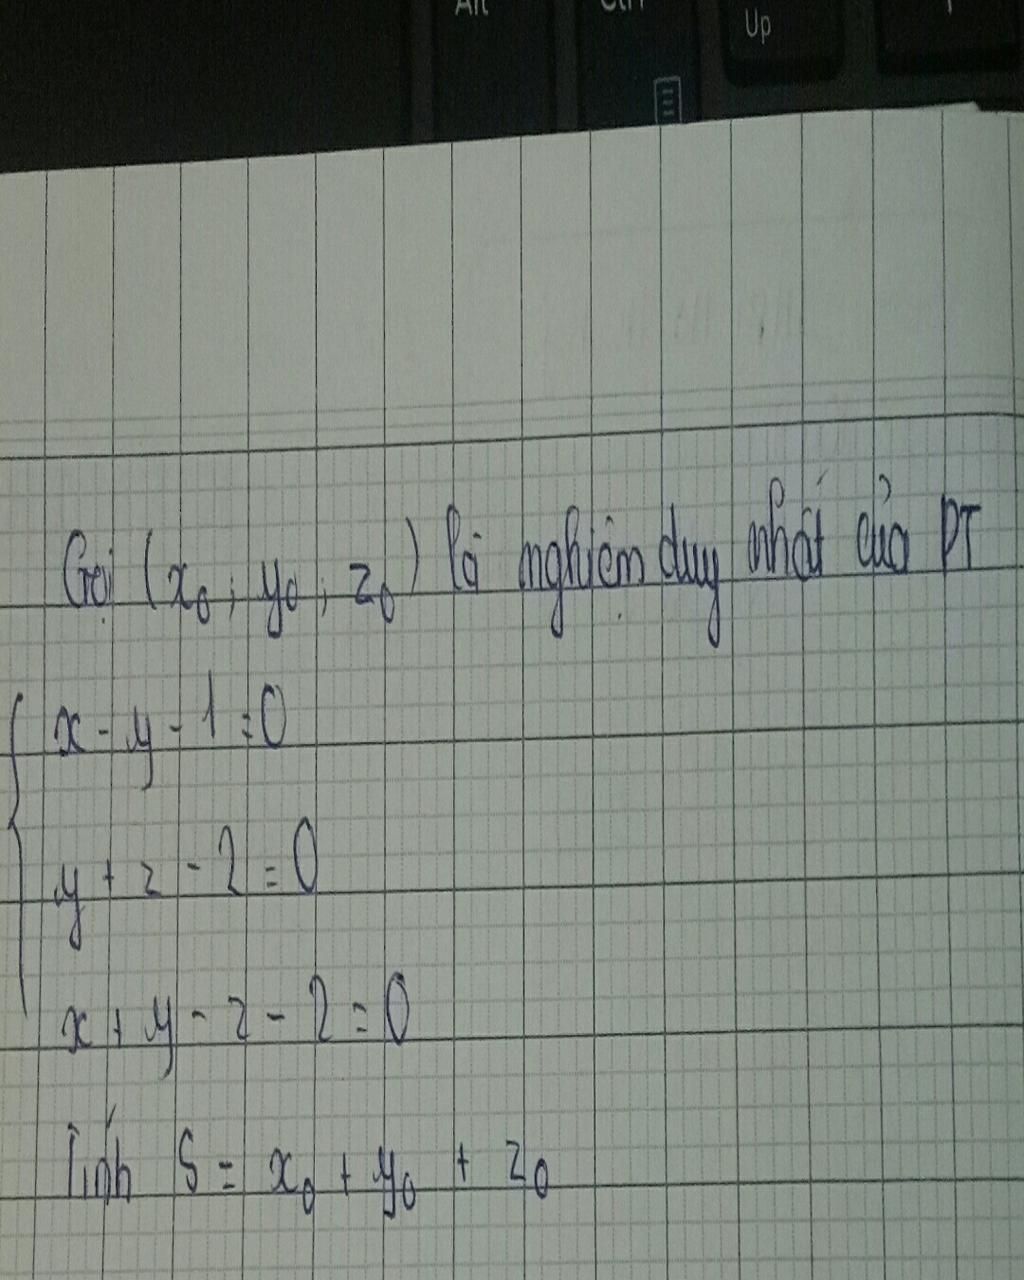 Alt Ctrl Up
Gọi (x₀; y₀; z₀) là nghiệm duy nhất của PT
x - y - 1 = 0
y + z - 2 = 0
x + y - z - 2 = 0
Tính S = x₀ + y₀ + z₀